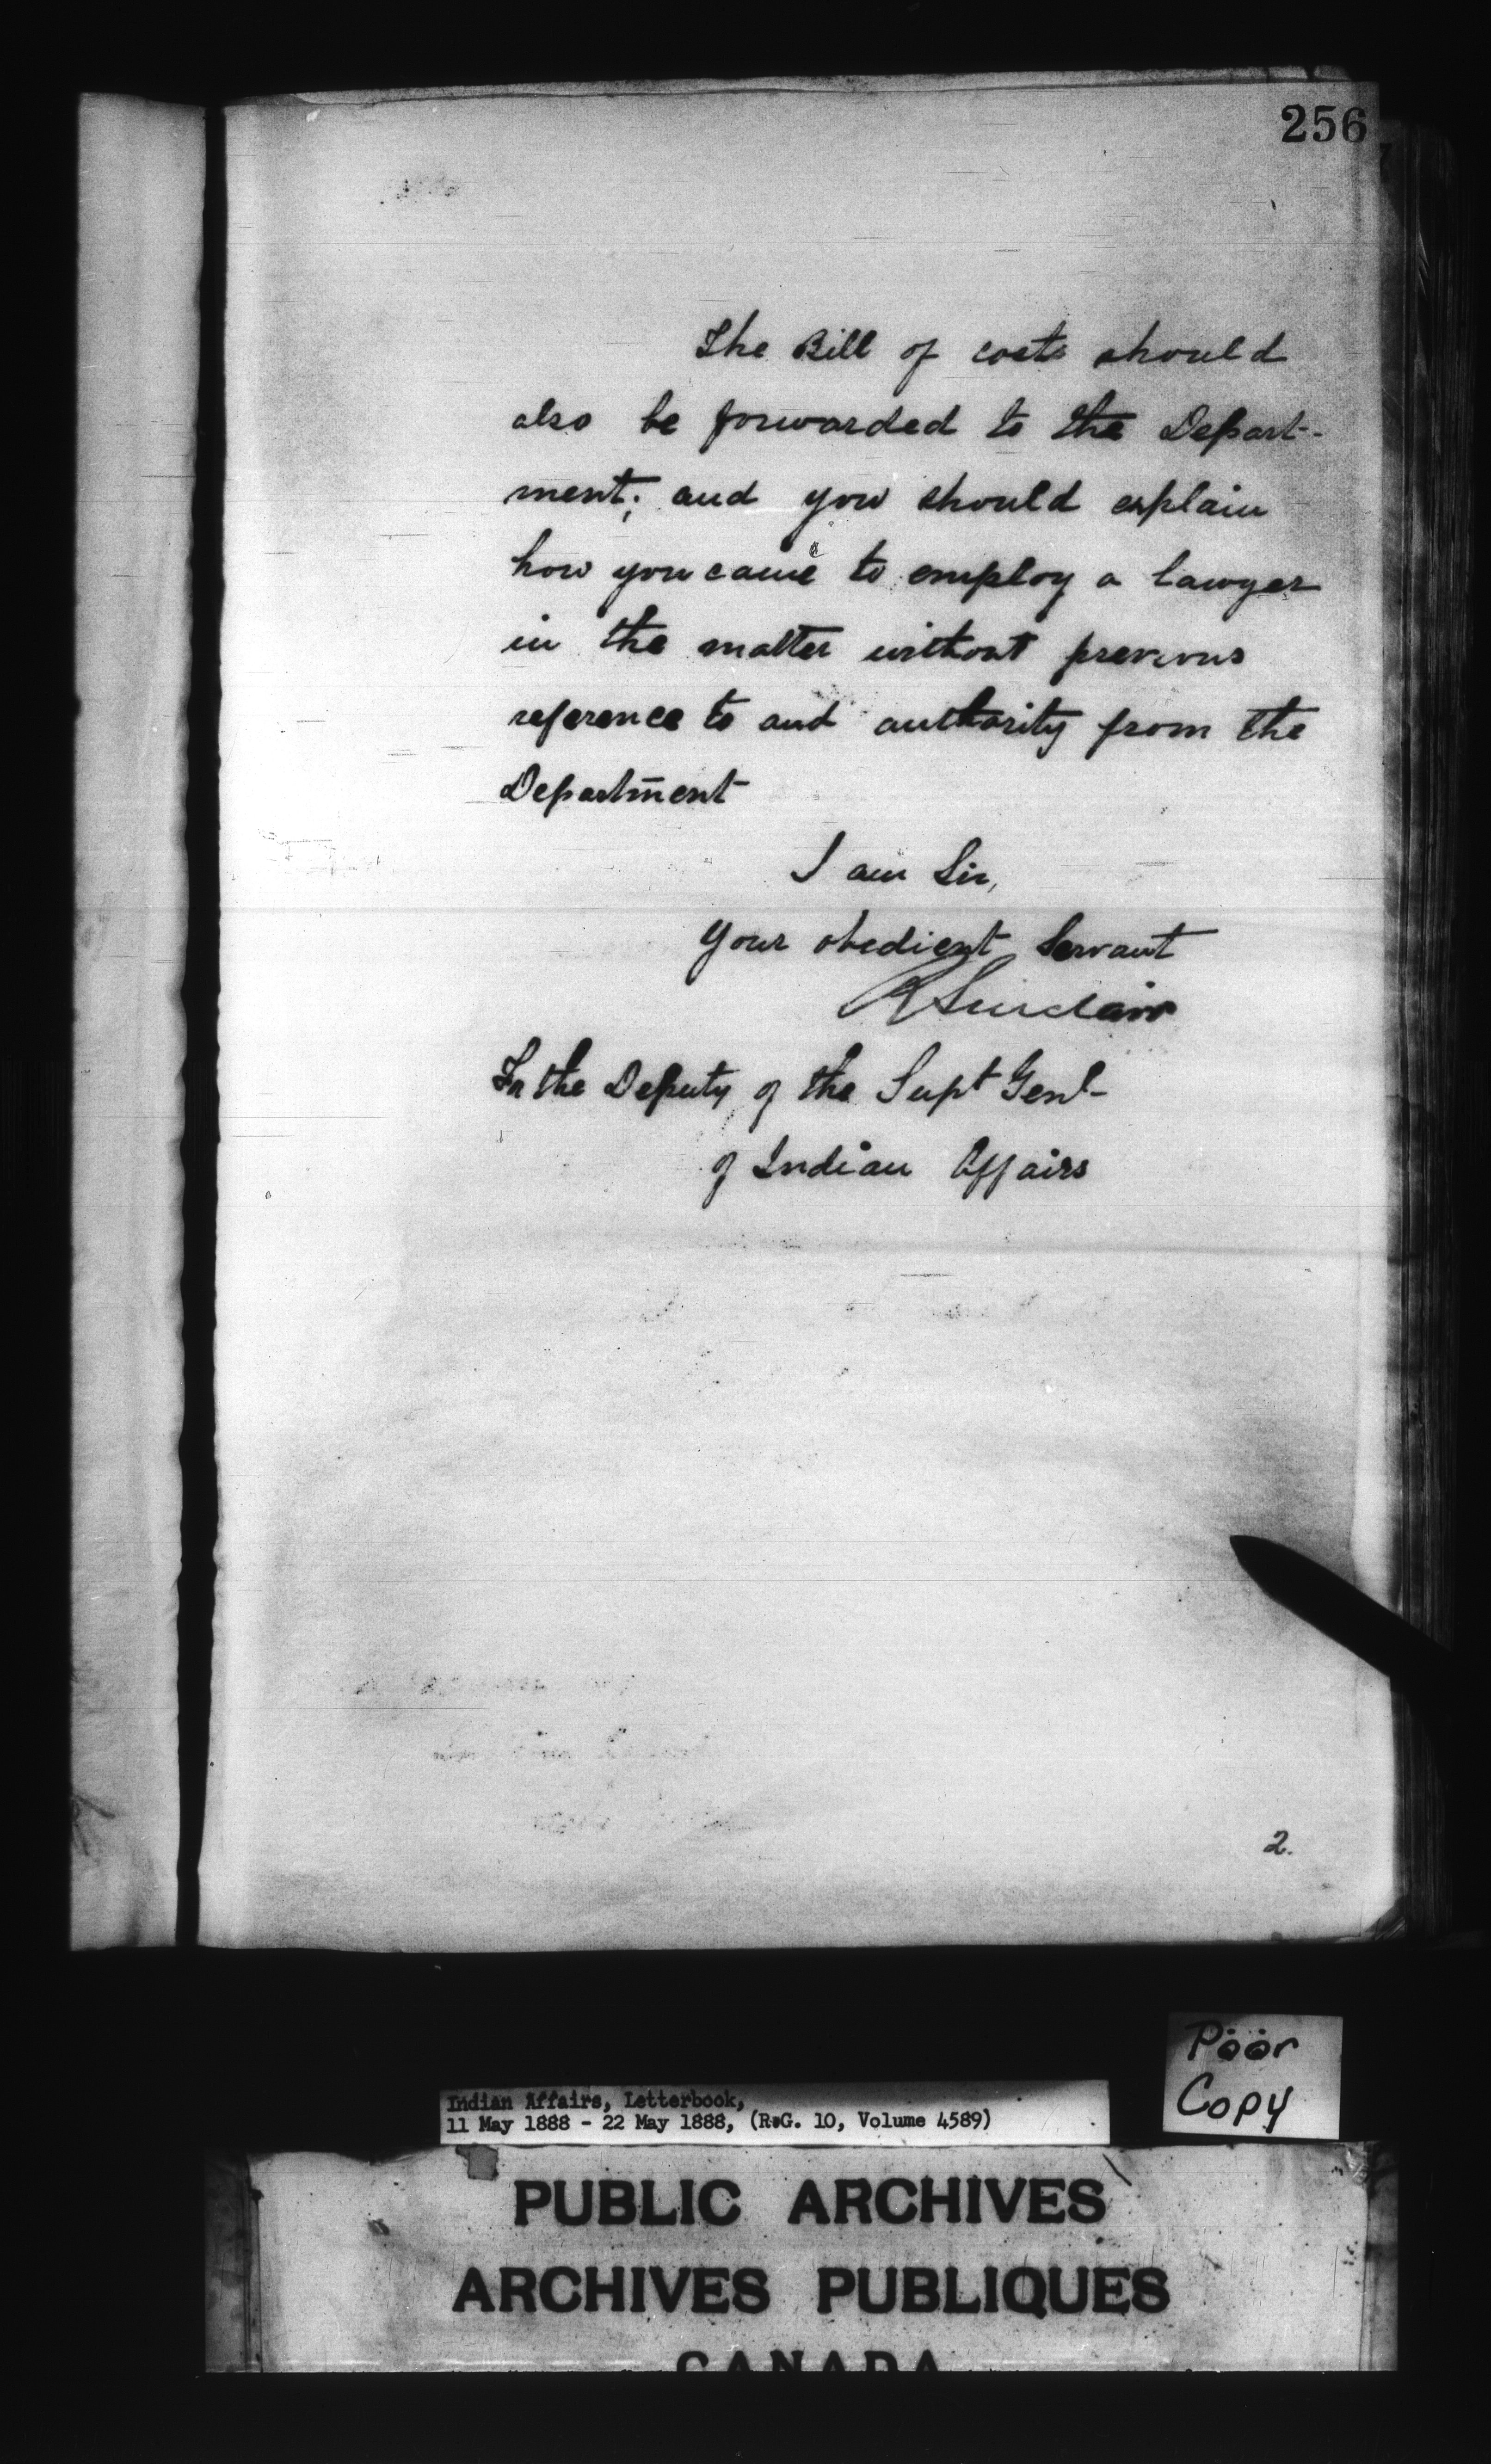 256
The Bill of costs should
also be forwarded to the Depart-
ment; and you should explain
how you came to employ a lawyer
in the matter without previous
reference to and authority from the
Department
I am Sir,
Your obedient Servant
R Sinclair
For the Deputy of the Supt Genl-
of Indian Affairs
2.
Poor
Copy
Indian Affairs, Letterbook,
11 May 1888 - 22 May 1888, (R.G. 10, Volume 4589)
PUBLIC ARCHIVES
ARCHIVES PUBLIQUES
CANADA